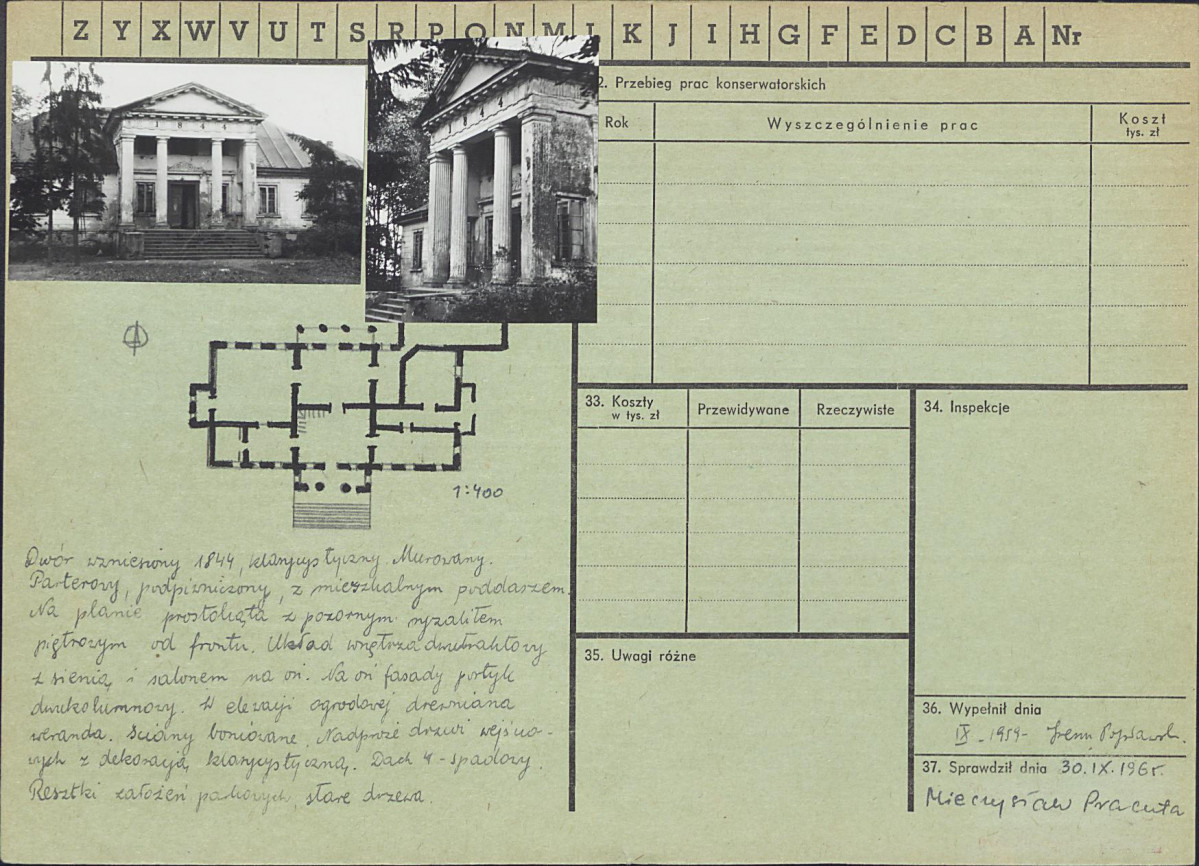 Z Y X W V U T S R P O N M L K J I H G F E D C B A Nr
1844
1844
2. Przebieg prac konserwatorskich
Rok
Wyszczególnienie prac
Koszt
tys. zł
33. Koszty
w tys. zł
Przewidywane
Rzeczywiste
34. Inspekcje
1:400
Dwór wzniesiony 1844, klasycystyczny. Murowany.
Parterowy, podpiwniczony, z mieszkalnym poddaszem.
Na planie prostokąta z pozornym ryzalitem
piętrowym od frontu. Układ wnętrza dwutraktowy
z sienią i salonem na osi. Na osi fasady portyk
dwukolumnowy. W elewacji ogrodowej drewniana
weranda. Ściany boniowane. Nadproże drzwi wejścio-
wych z dekoracją klasycystyczną. Dach 4-spadowy.
Resztki założeń parkowych, stare drzewa.
35. Uwagi różne
36. Wypełnił dnia
IX-1959-
37. Sprawdził dnia 30.IX.196r.
Mieczysław Pracuta